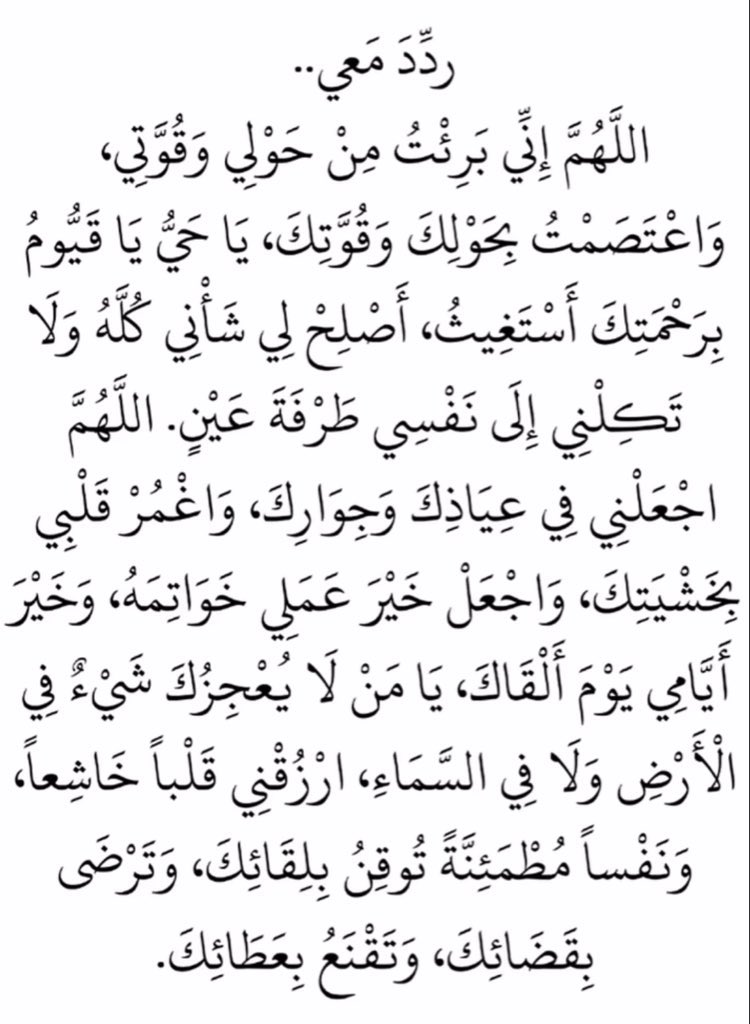 ردِّدَ مَعي..
اللَّهُمَّ إِنِّي بَرِئْتُ مِنْ حَوْلِي وَقُوَّتِي،
وَاعْتَصَمْتُ بِحَوْلِكَ وَقُوَّتِكَ، يَا حَيُّ يَا قَيُّومُ
بِرَحْمَتِكَ أَسْتَغِيثُ، أَصْلِحْ لِي شَأْنِي كُلَّهُ وَلَا
تَكِلْنِي إِلَى نَفْسِي طَرْفَةَ عَيْنٍ. اللَّهُمَّ
اجْعَلْنِي فِي عِيَاذِكَ وَجِوَارِكَ، وَاغْمُرْ قَلْبِي
بِخَشْيَتِكَ، وَاجْعَلْ خَيْرَ عَمَلِي خَوَاتِمَهُ، وَخَيْرَ
أَيَّامِي يَوْمَ أَلْقَاكَ، يَا مَنْ لَا يُعْجِزُكَ شَيْءٌ فِي
الْأَرْضِ وَلَا فِي السَّمَاءِ، ارْزُقْنِي قَلْباً خَاشِعاً،
وَنَفْساً مُطْمَئِنَّةً تُوقِنُ بِلِقَائِكَ، وَتَرْضَى
بِقَضَائِكَ، وَتَقْنَعُ بِعَطَائِكَ.